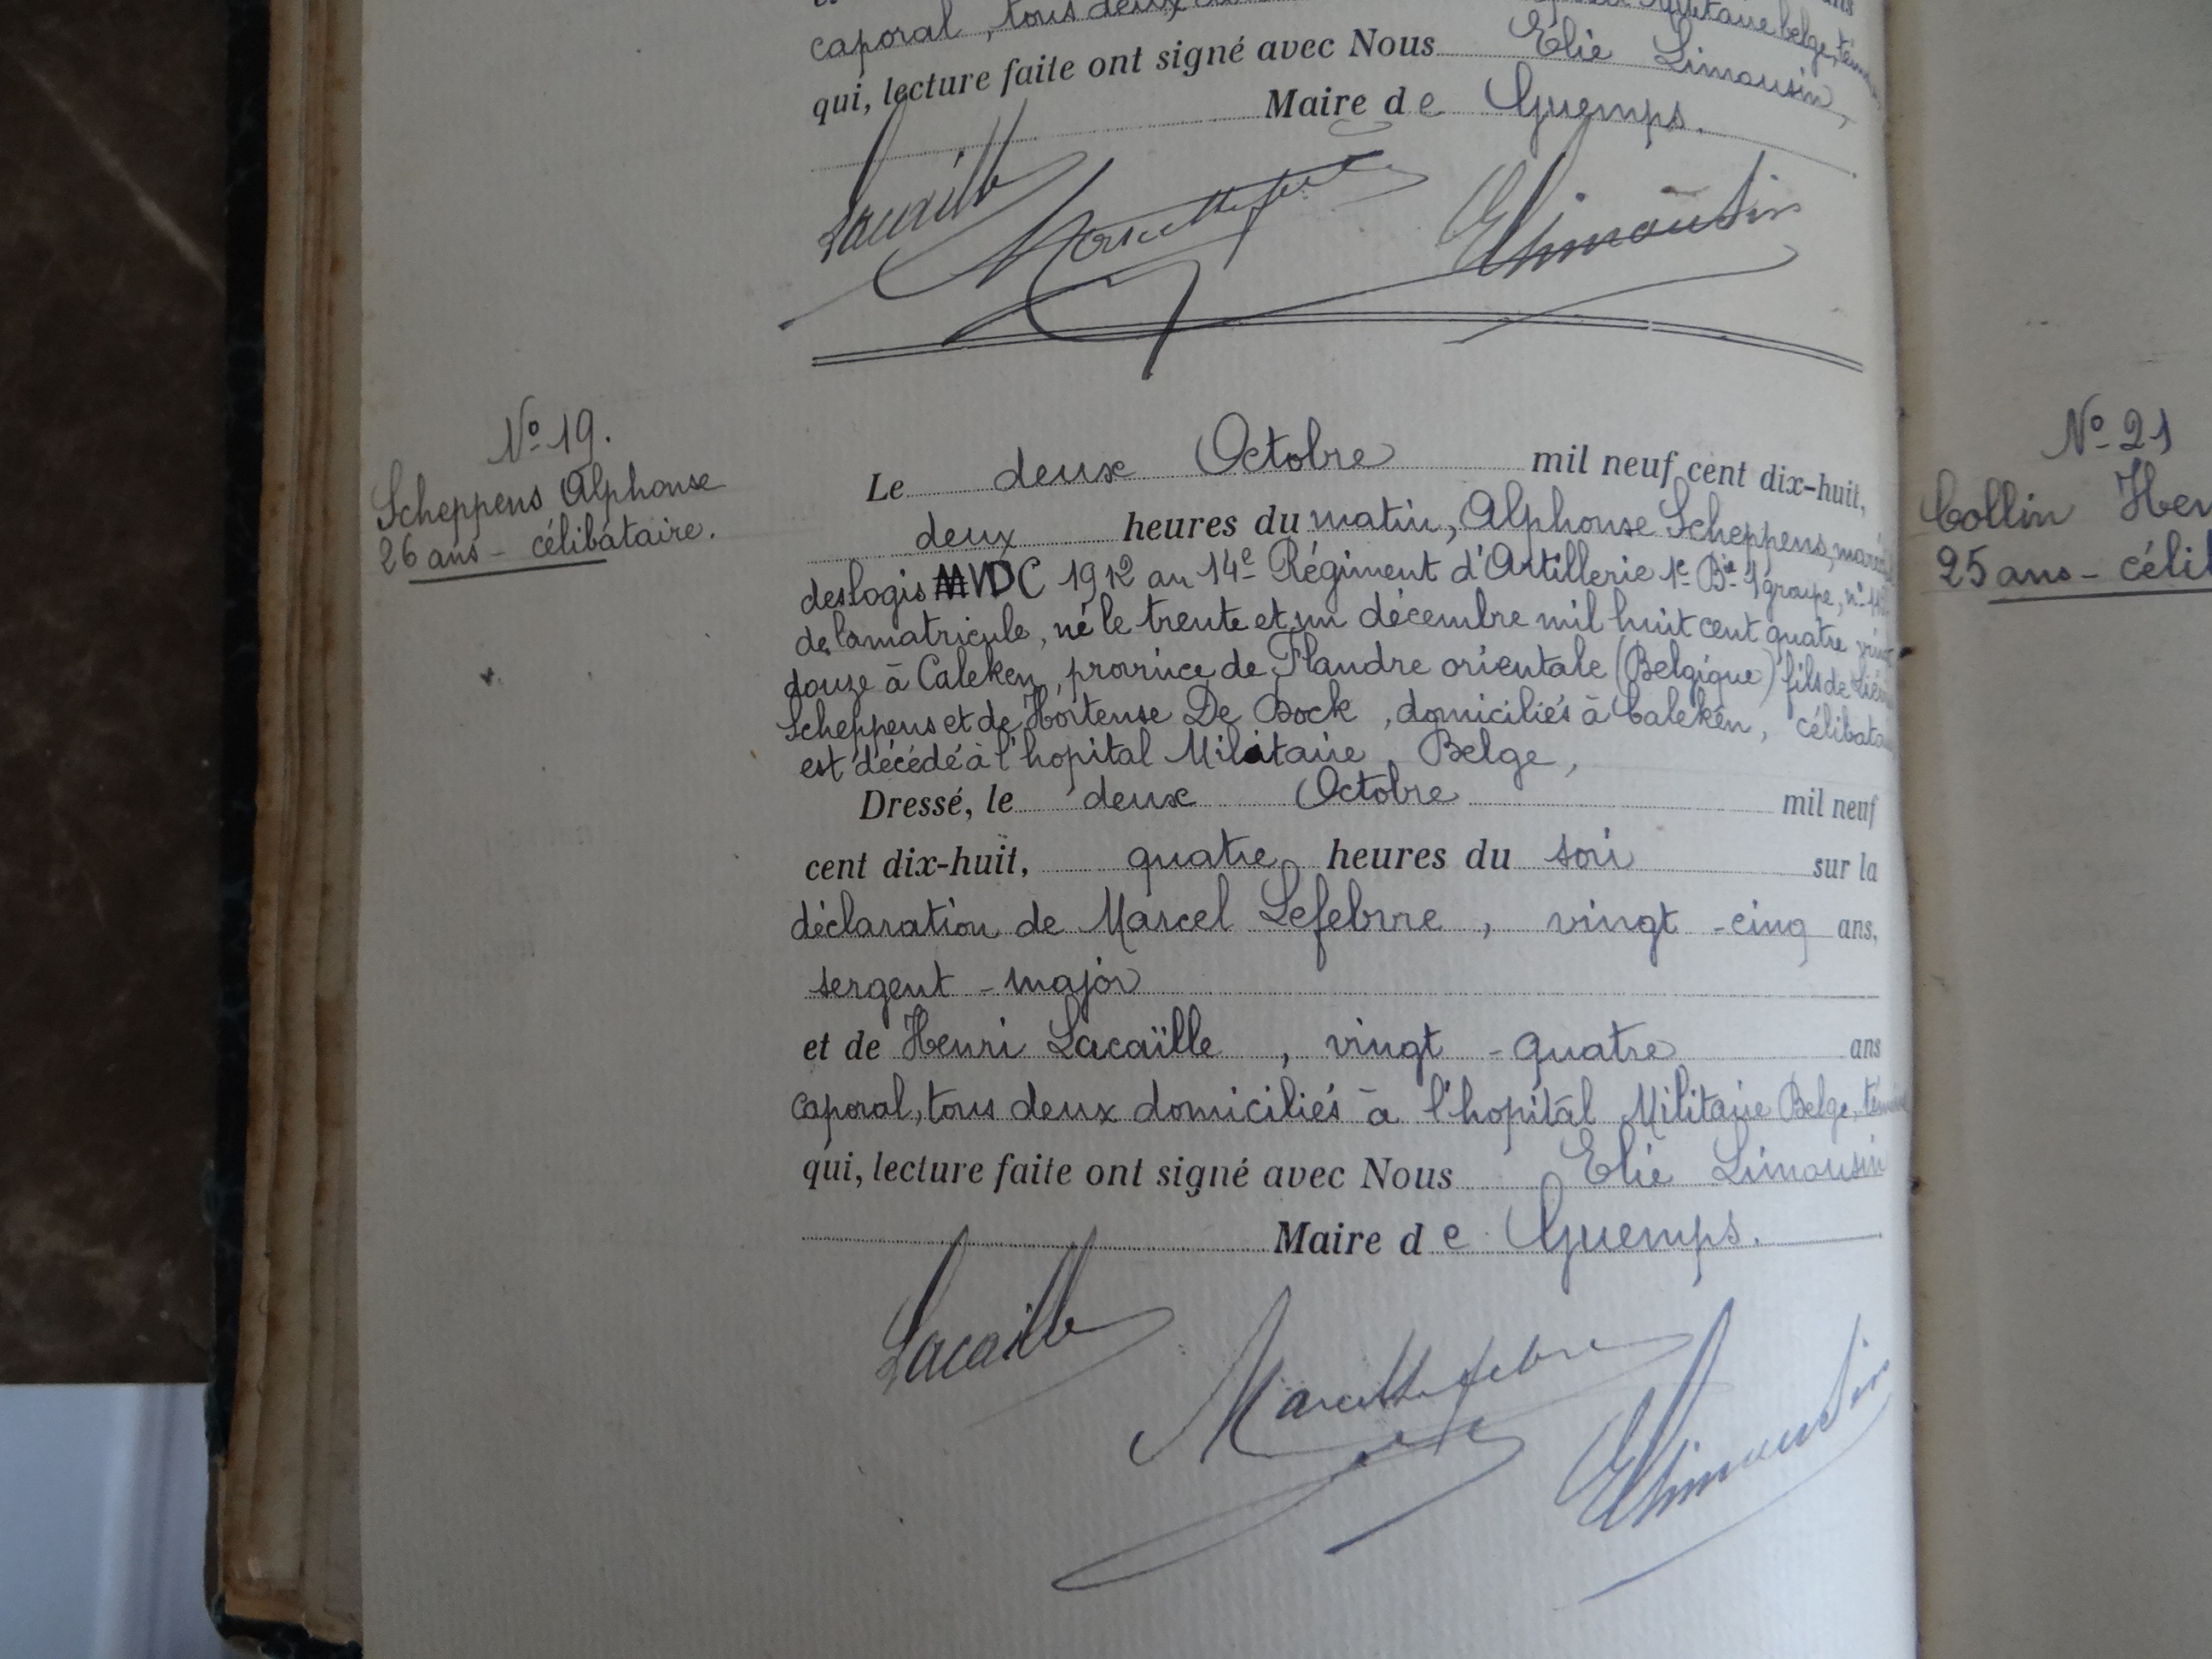 caporal, tous deux
belge, 
qui, lecture faite ont signé avec Nous Elie Limousin,
Maire de Guemps.
Limousin
N° 19.
Scheppens Alphonse
26 ans - célibataire.
Le deux Octobre mil neuf cent dix-huit,
deux heures du matin, Alphonse Scheppens,
des logis MVDC 1912 au 14e Régiment d'Artillerie 1e Bie 1 groupe, n°
de la matricule, né le trente et un décembre mil huit cent quatre vingt
douze à Caleken, province de Flandre orientale (Belgique) fils de
Scheppens et de Hortense De Bock, domiciliés à Caleken,
est décédé à l'hopital Militaire Belge,
Dressé, le deux Octobre mil neuf
cent dix-huit, quatre heures du soir sur la
déclaration de Marcel Lefebvre, vingt-cinq ans,
sergent-major
et de Henri Lacaïlle, vingt-quatre ans
caporal, tous deux domiciliés à l'hopital Militaire Belge,
qui, lecture faite ont signé avec Nous Elie Limousin
Maire de Guemps.
Lacaille
Marcel Lefebvre
E Limousin
N° 21
Collin
25 ans -